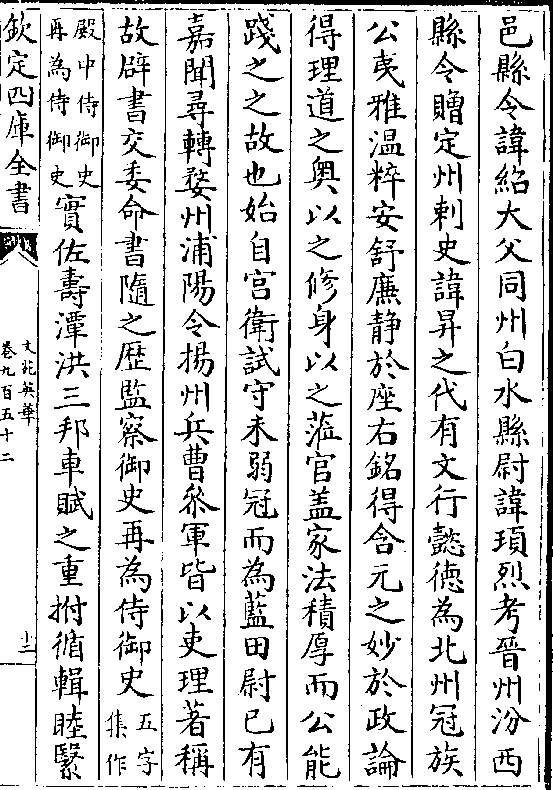 邑縣令諱紹大父同州白水縣尉諱頊烈考晉州汾西
縣令贈定州刺史諱昇之代有文行懿徳為北州冠族
公夷雅温粹安舒廉静於座右銘得含元之妙於政論
得理道之奥以之修身以之蒞官盖家法積厚而公能
踐之之故也始自宫衛試守未弱冠而為藍田尉已有
嘉聞尋轉婺州浦陽令揚州兵曹叅軍皆以吏理著稱
故辟書交委命書隨之歴監察御史再為侍御史五字集作
殿中侍御史再為侍御史實佐壽潭洪三邦車賦之重拊循輯睦繄
欽定四庫全書
文苑英華
卷九百五十二
十三